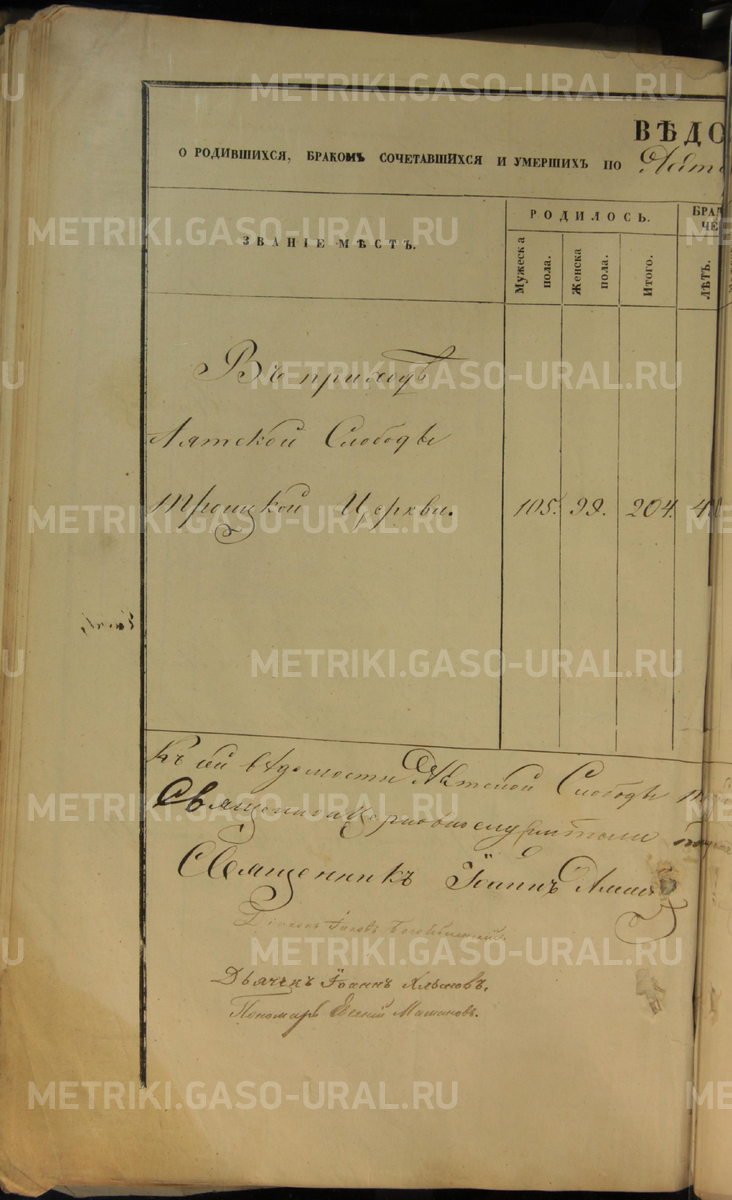 ВѢДО
О РОДИВШИХСЯ, БРАКОМЪ СОЧЕТАВШИХСЯ И УМЕРШИХЪ ПО
ЗВАНІЕ МѢСТЪ.
РОДИЛОСЬ.
БРА
ЧЕ
Мужеска пола.
Женска пола.
Итого.
ЛѢТЪ.
Въ приходѣ
Аятской Слободы
Троицкой Церкви.
105. 99. 204. 4
Къ сей вѣдомости Аятской Слободы
Священно церковнослужители
Священникъ Іоаннъ
Дьячекъ Іоаннъ
Пономарь Евгеній Маминовъ.
METRIKI.GASO-URAL.RU